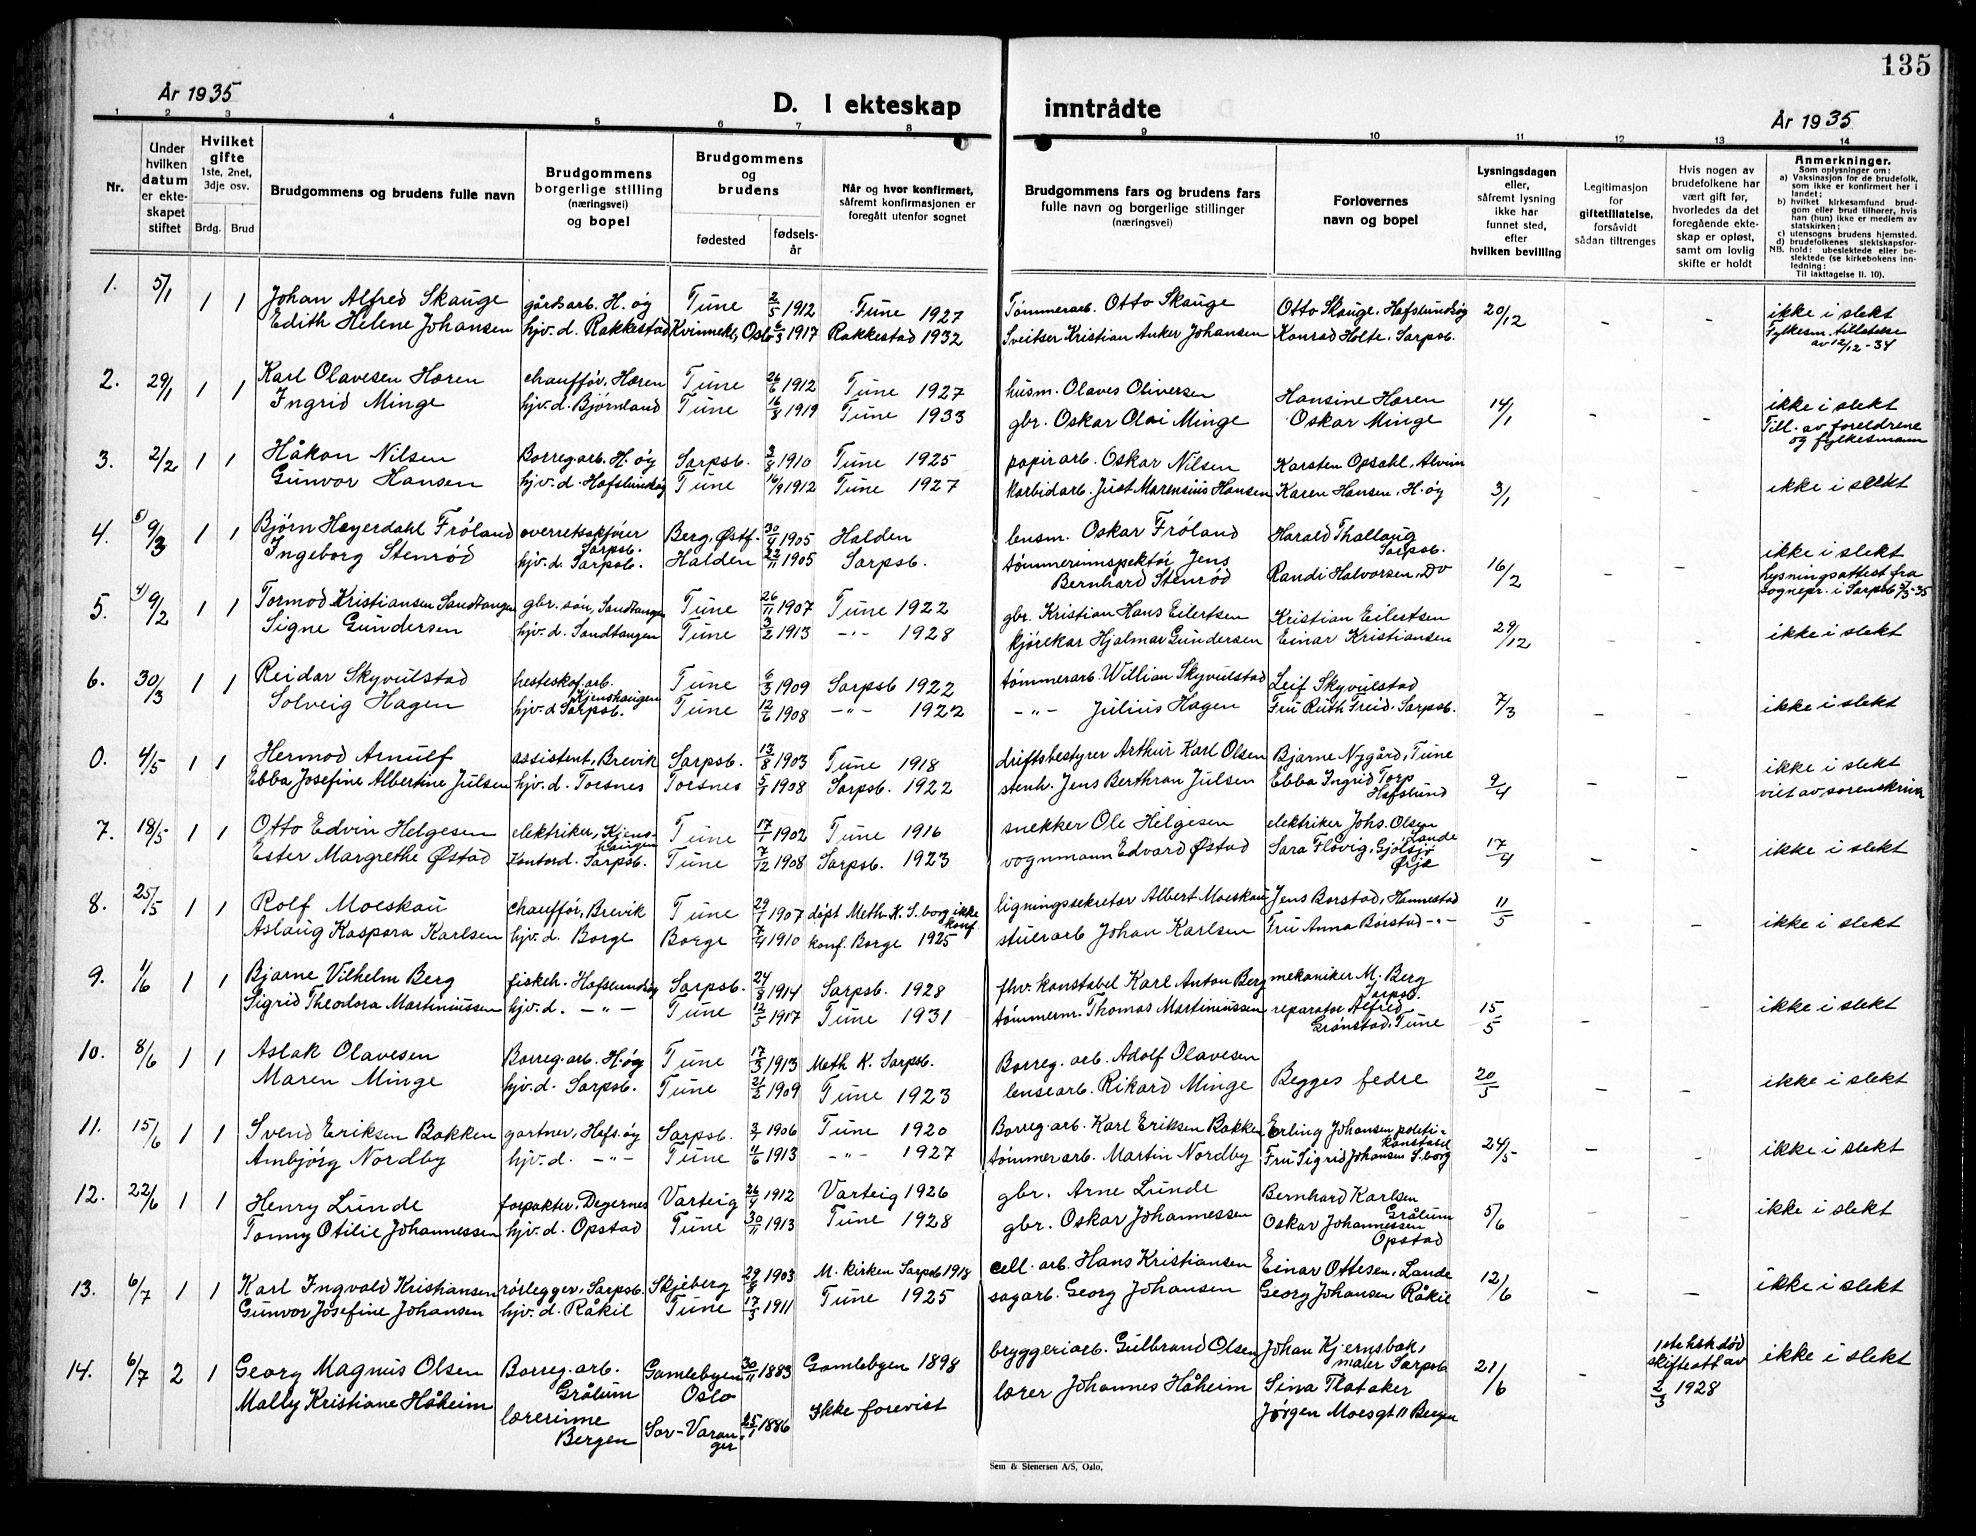 135
År 1935
D. I ekteskap inntrådte
År 1935
1 2 3 4 5 6 7 8 9 10 11 12 13 14
Nr.
Under hvilken datum er ekteskapet stiftet
Hvilket gifte 1ste, 2net, 3dje osv.
Brdg. Brud
Brudgommens og brudens fulle navn
Brudgommens borgerlige stilling (næringsvei) og bopel
Brudgommens og brudens
fødested
fødselsår
Når og hvor konfirmert, såfremt konfirmasjonen er foregått utenfor sognet
Brudgommens fars og brudens fars fulle navn og borgerlige stillinger (næringsvei)
Forlovernes navn og bopel
Lysningsdagen eller, såfremt lysning ikke har funnet sted, efter hvilken bevilling
Legitimasjon for giftetillatelse, forsåvidt sådan tiltrenges
Hvis nogen av brudefolkene har vært gift før, hvorledes da det foregående ekteskap er opløst, samt om lovlig skifte er holdt
Anmerkninger.
Som oplysninger om:
a) Vaksinasjon for de brudefolk, som ikke er konfirmert her i landet;
b) hvilket kirkesamfund brudgom eller brud tilhører, hvis han (hun) ikke er medlem av statskirken;
c) utensogns brudens hjemsted.
d) brudefolkenes slektskapsforhold: ubeslektede eller beslektede (se kirkebokens innledning:
NB. Til iakttagelse II. 10).
1. 5/1 1 1 Johan Alfred Skauge gårdsarb. H.øy Tune 2/5 1912 Tune 1927 Tømmerarb. Otto Skauge Otto Skauge, Hafslundsøy 20/12 - - ikke i slekt
Edith Helene Johansen hjv.d. Rakkestad Kvinnekl., Oslo 6/3 1917 Rakkestad 1932 Sveitser Kristian Anker Johansen Konrad Holte, Sarpsb. Fylkesm. tillatelse av 12/12-34
2. 29/1 1 1 Karl Olavesen Haren chauffør, Haren Tune 26/6 1912 Tune 1927 husm. Olaves Oliversen Hansine Haren 14/1 - - ikke i slekt
Ingrid Minge hjv.d. Bjørnland Tune 16/8 1919 Tune 1933 gbr. Oskar Olai Minge Oskar Minge Till. av foreldrene og fylkesmann
3. 2/2 1 1 Håkon Nilsen Borreg.arb. H.øy Sarpsb. 3/8 1910 Tune 1925 papirarb. Oskar Nilsen Karsten Opsahl, Alvim 3/1 - - ikke i slekt
Gunvor Hansen hjv.d. Hafslundsøy Tune 16/9 1912 Tune 1927 Karbidarb. Just Marensius Hansen Karen Hansen, H.øy
4. 9/3 1 1 Bjørn Heyerdahl Frøland overretssakfører Sarpsb. Berg, Østf. 30/4 1905 Halden lensm. Oskar Frøland Harald Thallaug Sarpsb. 16/2 - - ikke i slekt
Ingeborg Stenrød hjv.d. Sarpsb. Halden 22/11 1905 Sarpsb. tømmerinnspektør Jens Bernhard Stenrød Randi Halvorsen, Do Lysningsattest fra Sognepr. i Sarpsb
5. 9/2 1 1 Tormod Kristiansen Sandtangen gbr. søn, Sandtangen Tune 26/11 1907 Tune 1922 gbr. Kristian Hans Eilertsen Kristian Eilertsen 29/12 - - ikke i slekt
Signe Gundersen hjv.d. Sandtangen Tune 3/2 1913 -"- 1928 kjørekar Hjalmar Gundersen Einar Kristiansen
6. 30/3 1 1 Reidar Skyvulstad hesteskoarb. Kjenshaugen Tune 6/3 1909 Sarpsb 1922 tømmerarb. Willian Skyvulstad Leif Skyvulstad 7/3 - - ikke i slekt
Solveig Hagen hjv.d Sarpsb. Tune 12/6 1908 -"- 1922 -"- Julius Hagen Fru Ruth Freid, Sarpsb.
0. 4/5 1 1 Hermod Arnulf assistent, Brevik Sarpsb. 13/8 1903 Tune 1918 driftsbestyrer Arthur Karl Olsen Bjarne Nygård, Tune 9/4 - - ikke i slekt
Ebba Josefine Albertine Julsen hjv.d. Torsnes Torsnes 5/1 1908 Sarpsb. 1922 stenh. Jens Berthran Julsen Ebba Ingrid Torp Hafslund viet av sorenskriver
7. 18/5 1 1 Otto Edvin Helgesen elektriker, Kjenshaugen Tune 17/1 1902 Tune 1916 snekker Ole Helgesen elektriker Johs. Olsen Lande 17/4 - - ikke i slekt
Ester Margrethe Østad Kontord. Sarpsb. Tune 7/12 1908 Sarpsb. 1923 vognmann Edvard Østad Sara Fløvig, Gjølsjø Øije
8. 25/5 1 1 Rolf Moeskau chauffør, Brevik Tune 29/1 1907 døpt Meth K. S.borg ikke konf. ligningssekretær Albert Moeskau Jens Børstad, Hannestad 11/5 - - ikke i slekt
Aslaug Kaspara Karlsen hjv.d. Borge Borge 7/4 1910 konf. Borge 1925 stuerarb Johan Karlsen Fru Anna Børstad -"-
9. 1/6 1 1 Bjarne Vilhelm Berg fiskeh. Hafslundsøy Sarpsb. 24/8 1914 Sarpsb. 1928 fhv. konstabel Karl Anton Berg mekaniker M. Berg Sarpsb. 15/5 - - ikke i slekt
Sigrid Theodora Martiniussen hjv.d. -"- Tune 12/5 1917 Tune 1931 tømmerm. Thomas Martiniussen reparatør Alfred Grønstad, Tune
10. 8/6 1 1 Aslak Olavesen Borreg.arb. H.øy Tune 17/3 1913 Meth K. Sarpsb. Borreg. arb. Adolf Olavesen Begges fedre 20/5 - - ikke i slekt
Maren Minge hjv.d. Sarpsb. Tune 21/2 1909 Tune 1923 lensearb. Rikard Minge
11. 15/6 1 1 Svend Eriksen Bakken gartner, Hafs.øy Sarpsb. 2/1 1906 Tune 1920 Borreg.arb. Karl Eriksen Bakken Erling Johansen politikonstabel 24/5 - - ikke i slekt
Ambjørg Nordby hjv.d. -"- Tune 11/6 1913 -"- 1927 tømmerarb. Martin Nordby Fru Sigrid Johansen S.borg
12. 22/6 1 1 Henry Lunde forpakter, Degernes Varteig 26/4 1912 Varteig 1926 gbr. Arne Lunde Bernhard Karlsen Grålum 5/6 - - ikke i slekt
Tonny Otilie Johannessen hjv.d. Opstad Tune 30/11 1913 Tune 1928 gbr. Oskar Johannessen Oskar Johannessen Opstad
13. 6/7 1 1 Karl Ingvald Kristiansen rørlegger, Sarpsb. Skjeberg 29/8 1903 M. kirken Sarpsb 1918 cell. arb. Hans Kristiansen Einar Ottesen, Lande 12/6 - - ikke i slekt
Gunvor Josefine Johansen hjv.d. Råkil Tune 17/3 1911 Tune 1925 sagarb. Georg Johansen Georg Johansen Råkil
14. 6/7 2 1 Georg Magnus Olsen Borreg.arb. Grålum Gamlebyen Oslo 30/11 1883 Gamlebyen 1898 bryggeriarb. Gulbrand Olsen Johan Kjernsbak, maler Sarpsb 21/6 - 1ste hst død skifteatt av 2/3 1928 ikke i slekt
Mally Kristiane Håheim lærerinne Bergen Sør-Varanger 25/1 1886 Ikke forevist lærer Johannes Håheim Sina Flataker
Jørgen Moesgt 11 Bergen
Sem & Stenersen A/S, Oslo.